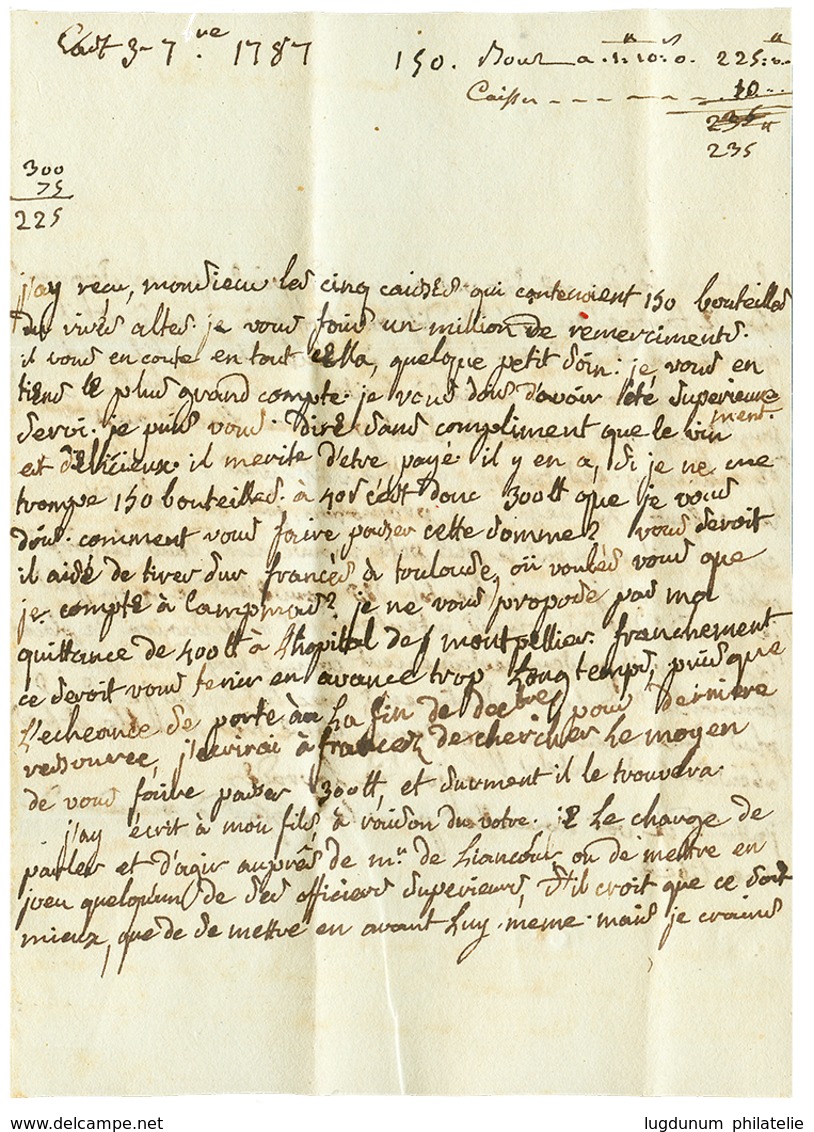 3. 7bre 1787
150. Bout a 1: 10: 0. 225: 0.
Caisses 10
235
235
300
75
225
j'ay reçu, monsieur les cinq caisses qui contenoient 150 bouteilles
du rives altes. je vous fais un million de remerciments.
il vous en coute en tout cella, quelque petit soin: je vous en
tiens le plus grand compte. je vous dois d'avoir été superieure
ment.
servi. je puis vous dire sans compliment que le vin
est délicieux. il merite d'etre payé. il y en a, si je ne me
trompe 150 bouteilles. à 40s c'est donc 300lt que je vous
dois. comment vous faire passer cette somme? vous seroit
il aisé de tirer sur francés à toulouse, où voulés vous que
je compte à ? je ne vous propose pas ma
quittance de 400lt à L'hopital de montpellier. franchement
ce seroit vous tenir en avance trop Longtemps, puisque
L'echeance se porte à La fin de decbre, pour derniere
ressource, j'ecrirai à francés de chercher Le moyen
de vous faire passer 300lt, et surment il le trouvera.
j'ay écrit à mon fils, à raison du votre. je Le charge de
parler et d'agir auprès de mr. de Liancour, ou de mettre en
jeu quelqu'un de ses officiers superieurs, s'il croit que ce soit
mieux, que de se mettre en avant Luy-meme. mais je crains
www.delcampe.net
lugdunum philatelie